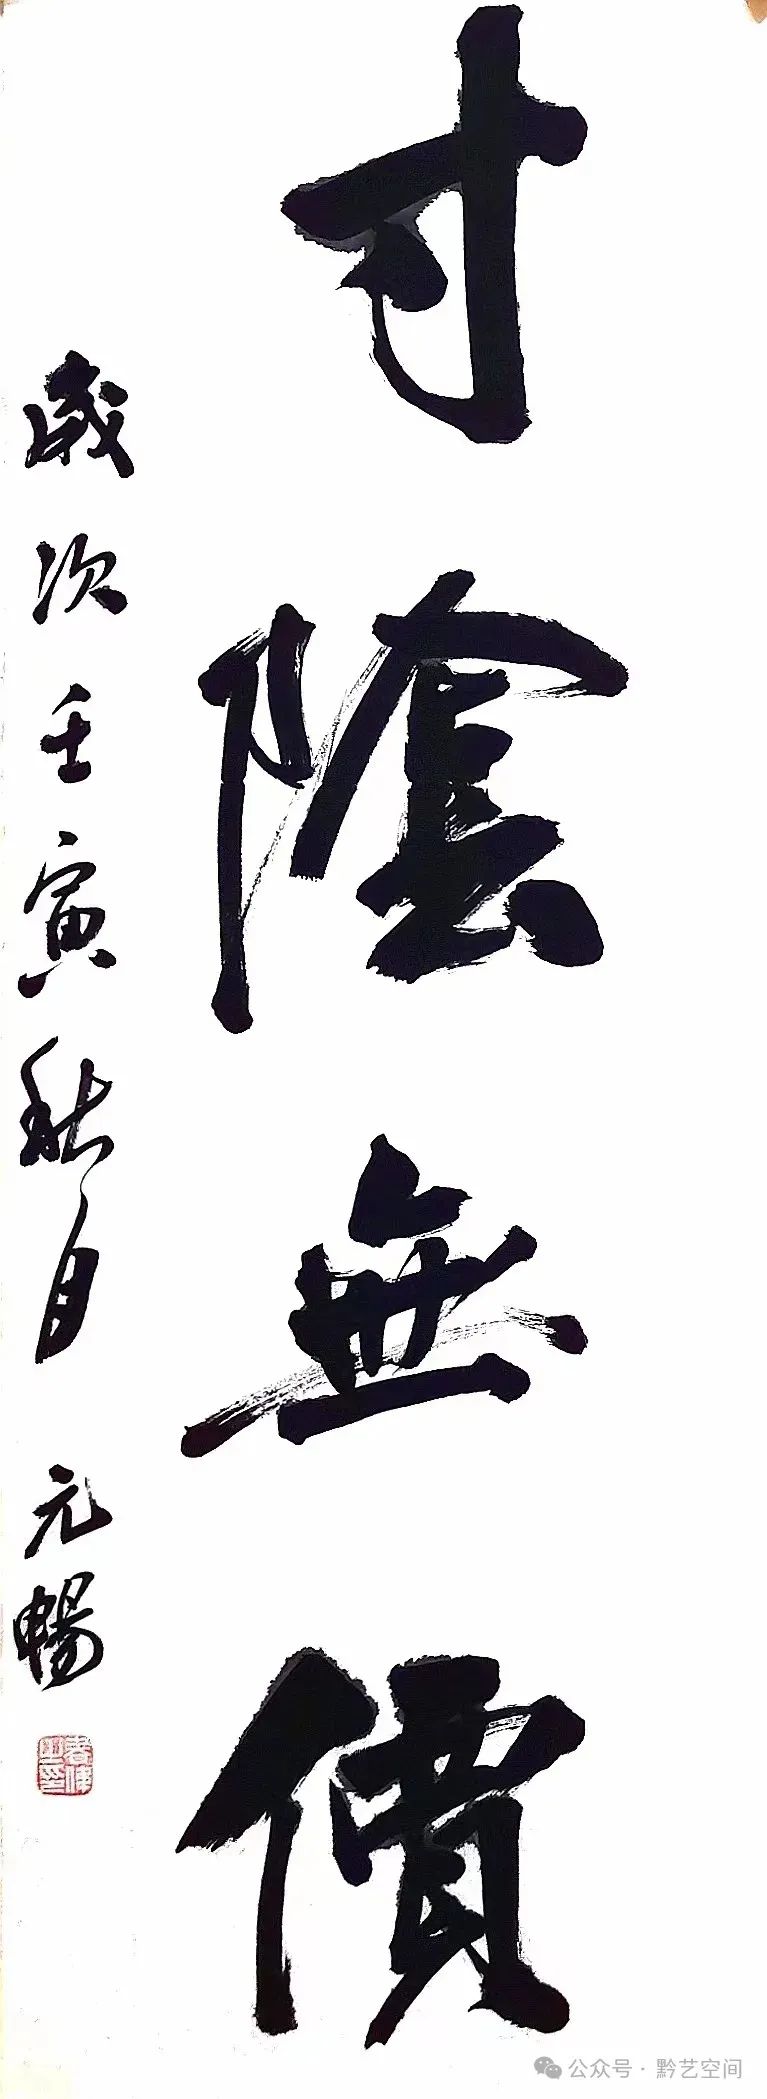 寸陰無價
歲次壬寅秋月 元暢
公众号 · 黔艺空间